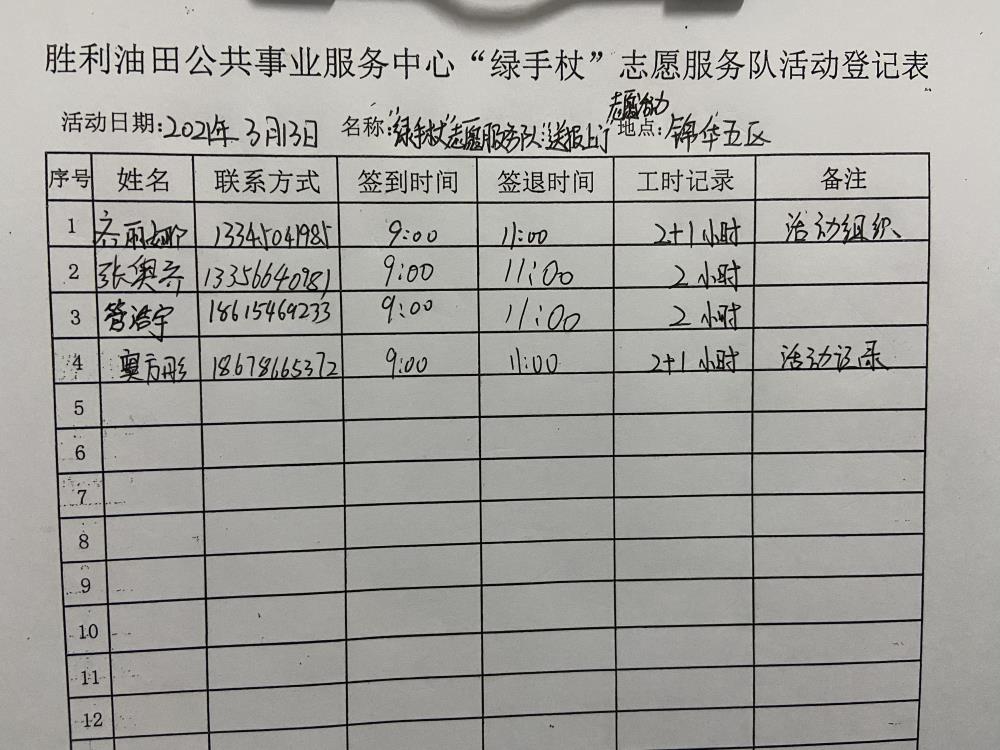 胜利油田公共事业服务中心“绿手杖”志愿服务队活动登记表
活动日期:2021年3月13日 名称:“绿手杖”志愿服务队“送报上门”志愿活动 地点:锦华五区
序号 姓名 联系方式 签到时间 签退时间 工时记录 备注
1 齐丽娜 13345041985 9:00 11:00 2+1小时 活动组织
2 张奥齐 13356640981 9:00 11:00 2小时
3 管浩宇 18615469233 9:00 11:00 2小时
4 奥方彤 18678665372 9:00 11:00 2+1小时 活动记录
5
6
7
8
9
10
11
12